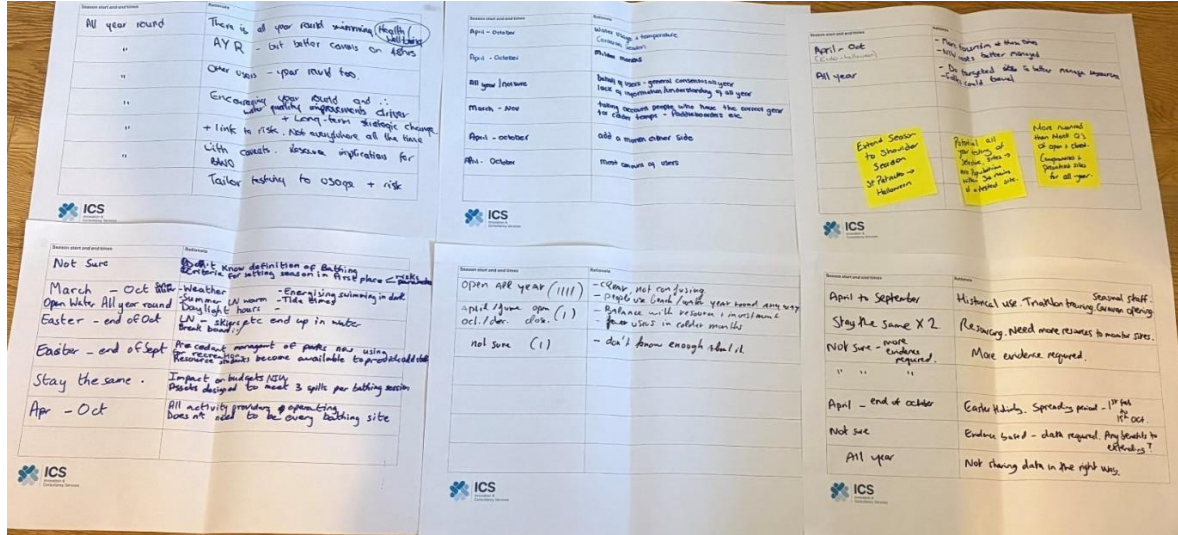 Season start and end times Rationale
All year round There is all year round swimming Health/Wellbeing
" AYR - but better comms on
" Other users - year round too.
" Encouraging year round and ∴
water quality improvements driver
+ Long-term strategic change.
" + link to risk. Not everywhere all the time
" With caveats. Resource implications for
Tailor testing to usage + risk
ICS
Innovation &
Consultancy Services
Season start and end times Rationale
April - October Water usage + temperature
Caravan Season
April - October Milder months
All year / not sure of users - general consensus all year
lack of information/understanding of all year
March - Nov taking account people who have the correct gear
for colder temps - Paddleboarders etc
April - october add a month either side
April - October most amount of users
ICS
Innovation &
Consultancy Services
Season start and end times Rationale
April - Oct - More tourism at those times
- better managed
All year - Do targeted sites to better manage resources
- could travel
Extend Season
to Shoulder
Season
St Patricks →
Halloween
Potential all
year testing of
Selective sites →
Population
within 30 mins
of a tested site.
More nuanced
than
of open & closed.
sites
for all-year.
ICS
Innovation &
Consultancy Services
Season start and end times Rationale
Not Sure Don't know definition of Bathing
Criteria for setting season in first place risks
March - Oct - Weather - Energising swimming in dark
Open Water All year round - Summer LN warm - Tide times
Daylight hours -
Easter - end of Oct LN - skiers etc end up in water
Easter - end of Sept Precedent managent of parks now using
for recreation
Resource students become available to provide add staff
Stay the same. Impact on budgets/NIW
Assets designed to meet 3 spills per bathing season
Apr - Oct All activity providers operating
Does n't need to be every bathing site
ICS
Innovation &
Consultancy Services
Season start and end times Rationale
open all year (IIII) - clear, not confusing
- people use beach/water year round anyway
april/june open (I) - Balance with resource + investment
oct./dec. close. - fewer users in colder months
not sure (I) - don't know enough about it
ICS
Innovation &
Consultancy Services
Season start and end times Rationale
April to September Historical use. Triathlon training. Seasonal staff. Caravan opening.
Stay the same X 2 Resourcing. Need more resources to monitor sites.
Not sure - more
evidence
required. More evidence required.
" " "
April - end of october Easter Holiday. Spreading period - 1st Feb
to
15th Oct.
Not sure Evidence based - data required. Any benefits to
extending?
All year Not sharing data in the right way.
ICS
Innovation &
Consultancy Services